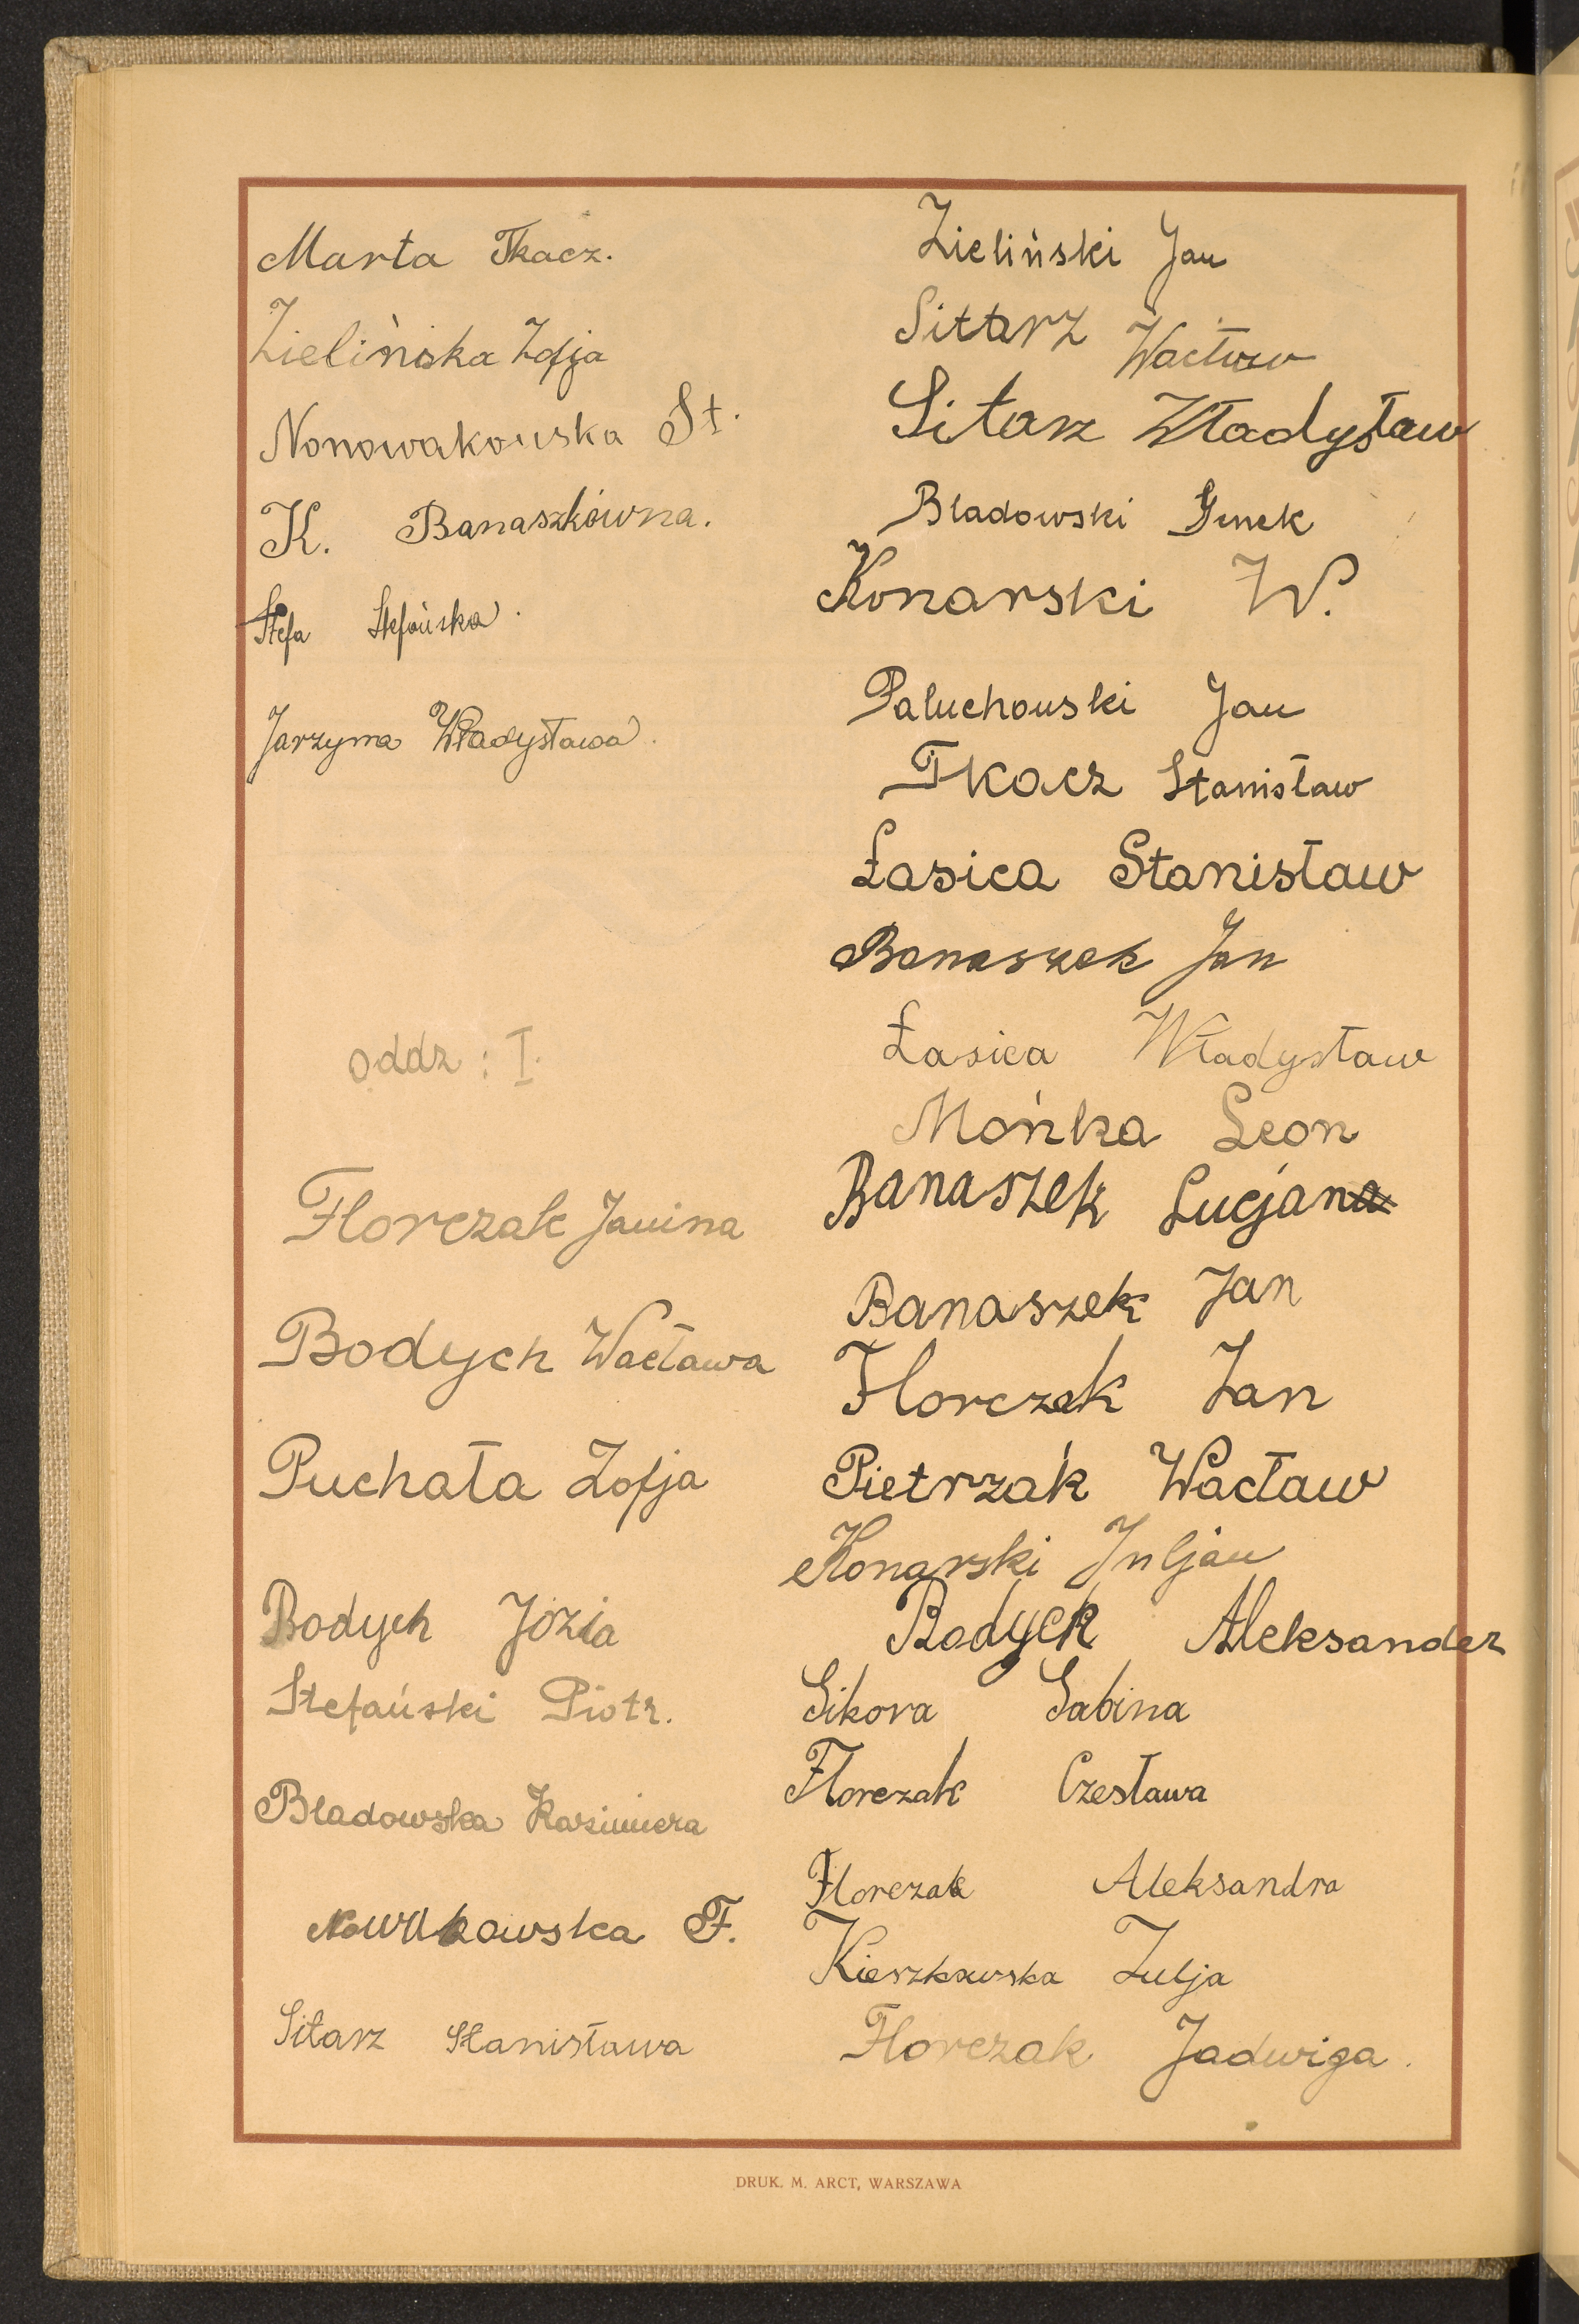 Marta Tkacz.
Zielińska Zofja
Nonowakowska St.
K. Banaszkówna.
Stefa Stefańska.
Jarzyna Władysława.
oddz: I.
Florczak Janina
Bodych Wacława
Puchała Zofja
Bodych Józia
Stefański Piotr.
Bladowska Kazimiera
Nowakowska F.
Sitarz Stanisława
Zieliński Jan
Sittarz Wacław
Sitarz Władysław
Bladowski Genek
Konarski W.
Paluchowski Jan
Tkacz Stanisław
Łasica Stanisław
Banaszek Jan
Łasica Władysław
Mońka Leon
Banaszek Lucjan
Banaszek Jan
Florczak Jan
Pietrzak Wacław
Konarski Juljan
Bodych Aleksander
Sikora Sabina
Florczak Czesława
Florczak Aleksandra
Kieszkowska Julja
Florczak Jadwiga.
DRUK. M. ARCT, WARSZAWA